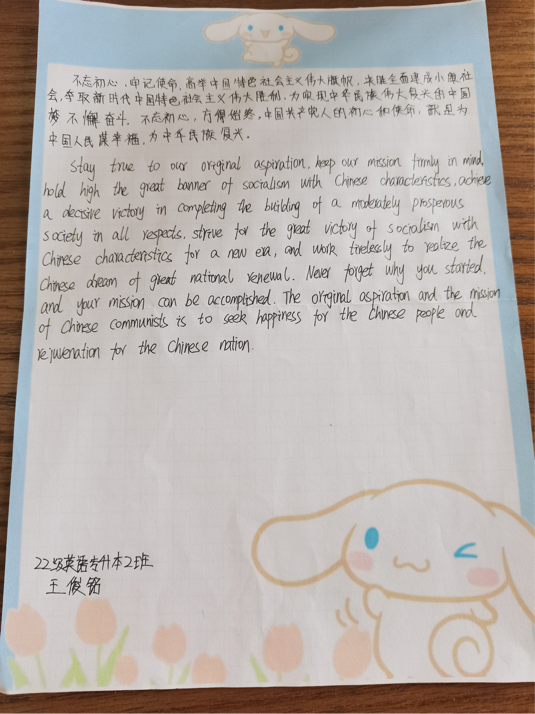 不忘初心，牢记使命，高举中国特色社会主义伟大旗帜，决胜全面建成小康社
会，夺取新时代中国特色社会主义伟大胜利，为实现中华民族伟大复兴的中国
梦不懈奋斗。不忘初心，方得始终，中国共产党人的初心和使命，就是为
中国人民谋幸福，为中华民族复兴。
Stay true to our original aspiration, keep our mission firmly in mind,
hold high the great banner of socialism with Chinese characteristics, achieve
a decisive victory in completing the building of a moderately prosperous
society in all respects, strive for the great victory of socialism with
Chinese characteristics for a new era, and work tirelessly to realize the
Chinese dream of great national renewal. Never forget why you started,
and your mission can be accomplished. The original aspiration and the mission
of Chinese communists is to seek happiness for the Chinese people and
rejuvenation for the Chinese nation.
22级英语专升本2班
王俊铭